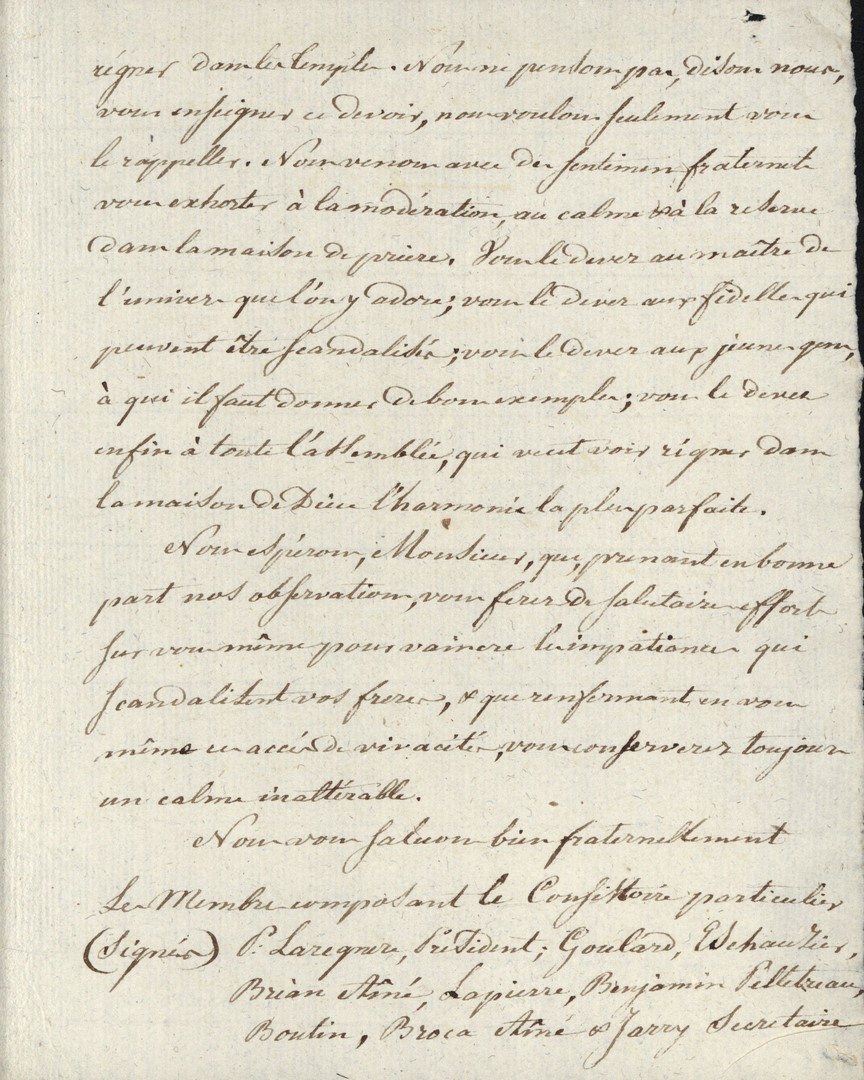 régner dans les temples. Nous ne pensons pas, disons nous,
vous enseigner ce devoir, nous voulons seulement vous
le rappeller. Nous venons avec des sentimens fraternels
vous exhorter à la modération, au calme & à la reserve
dans la maison de prière. Vous le devez au maître de
l'univers que l'on y adore; vous le devez aux fidelles qui
peuvent être scandalisés; vous le devez aux jeunes gens,
à qui il faut donner de bons exemples; vous le devez
enfin à toute l'assemblée, qui veut voir régner dans
la maison de Dieu l'harmonie la plus parfaite.
Nous espérons, Monsieur, que, prenant en bonne
part nos observations, vous ferez de salutaires efforts
sur vous même pour vaincre les impatiences qui
scandalisent vos freres, & que renfermant en vous
même ces accés de vivacités, vous conserverez toujours
un calme inaltérable.
Nous vous saluons bien fraternellement
Les Membres composant le Consistoire particulier
(Signés) P. Laregnere, Président; Goulard, Eschauzier,
Brian Aîné, Lapierre, Benjamin Pelletreau,
Boutin, Broca Aîné & Jarry Secretaire